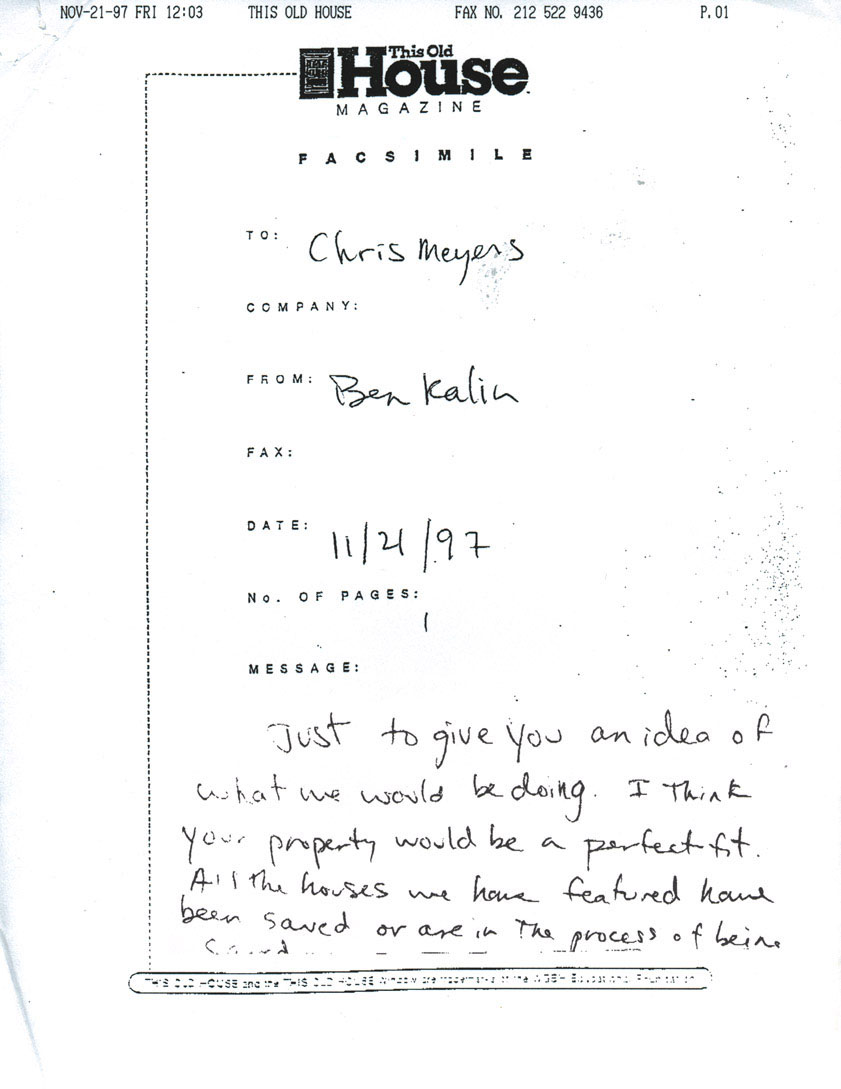 NOV-21-97 FRI 12:03 THIS OLD HOUSE FAX NO. 212 522 9436 P.01
This Old
House
MAGAZINE
FACSIMILE
TO: Chris Meyers
COMPANY:
FROM: Ben Kalin
FAX:
DATE: 11/21/97
No. OF PAGES:
1
MESSAGE:
Just to give you an idea of
what we would be doing. I Think
your property would be a perfect fit.
All the houses we have featured have
been saved or are in The process of being
saved
THIS OLD HOUSE and the THIS OLD HOUSE window are trademarks of the WGBH Educational Foundation